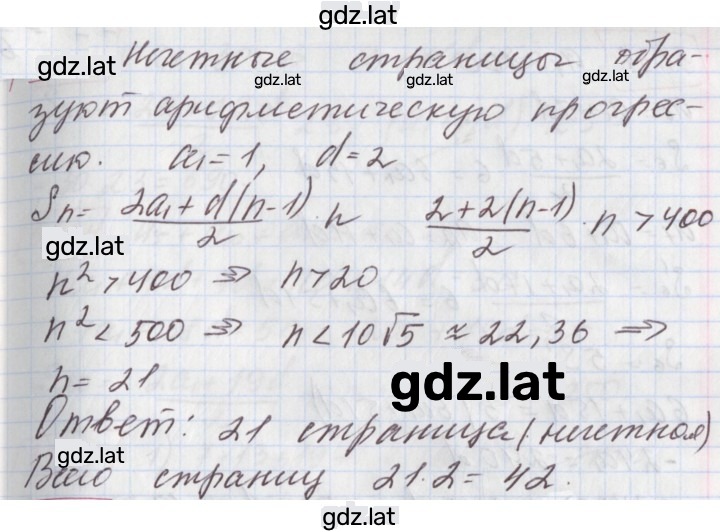 gdz.lat
Нечетные страницы обра-
gdz.lat gdz.lat gdz.lat
зуют арифметическую прогрес-
сию. a₁=1, d=2
gdz.lat gdz.lat
Sn= (2a₁+d(n-1))/2 · n (2+2(n-1))/2 · n > 400
gdz.lat
n² > 400 ⇒ n > 20
n² < 500 ⇒ n < 10√5 ≈ 22,36 ⇒
n = 21
gdz.lat
Ответ: 21 страница (нечетная)
gdz.lat
Всего страниц 21·2 = 42.
gdz.lat
gdz.lat